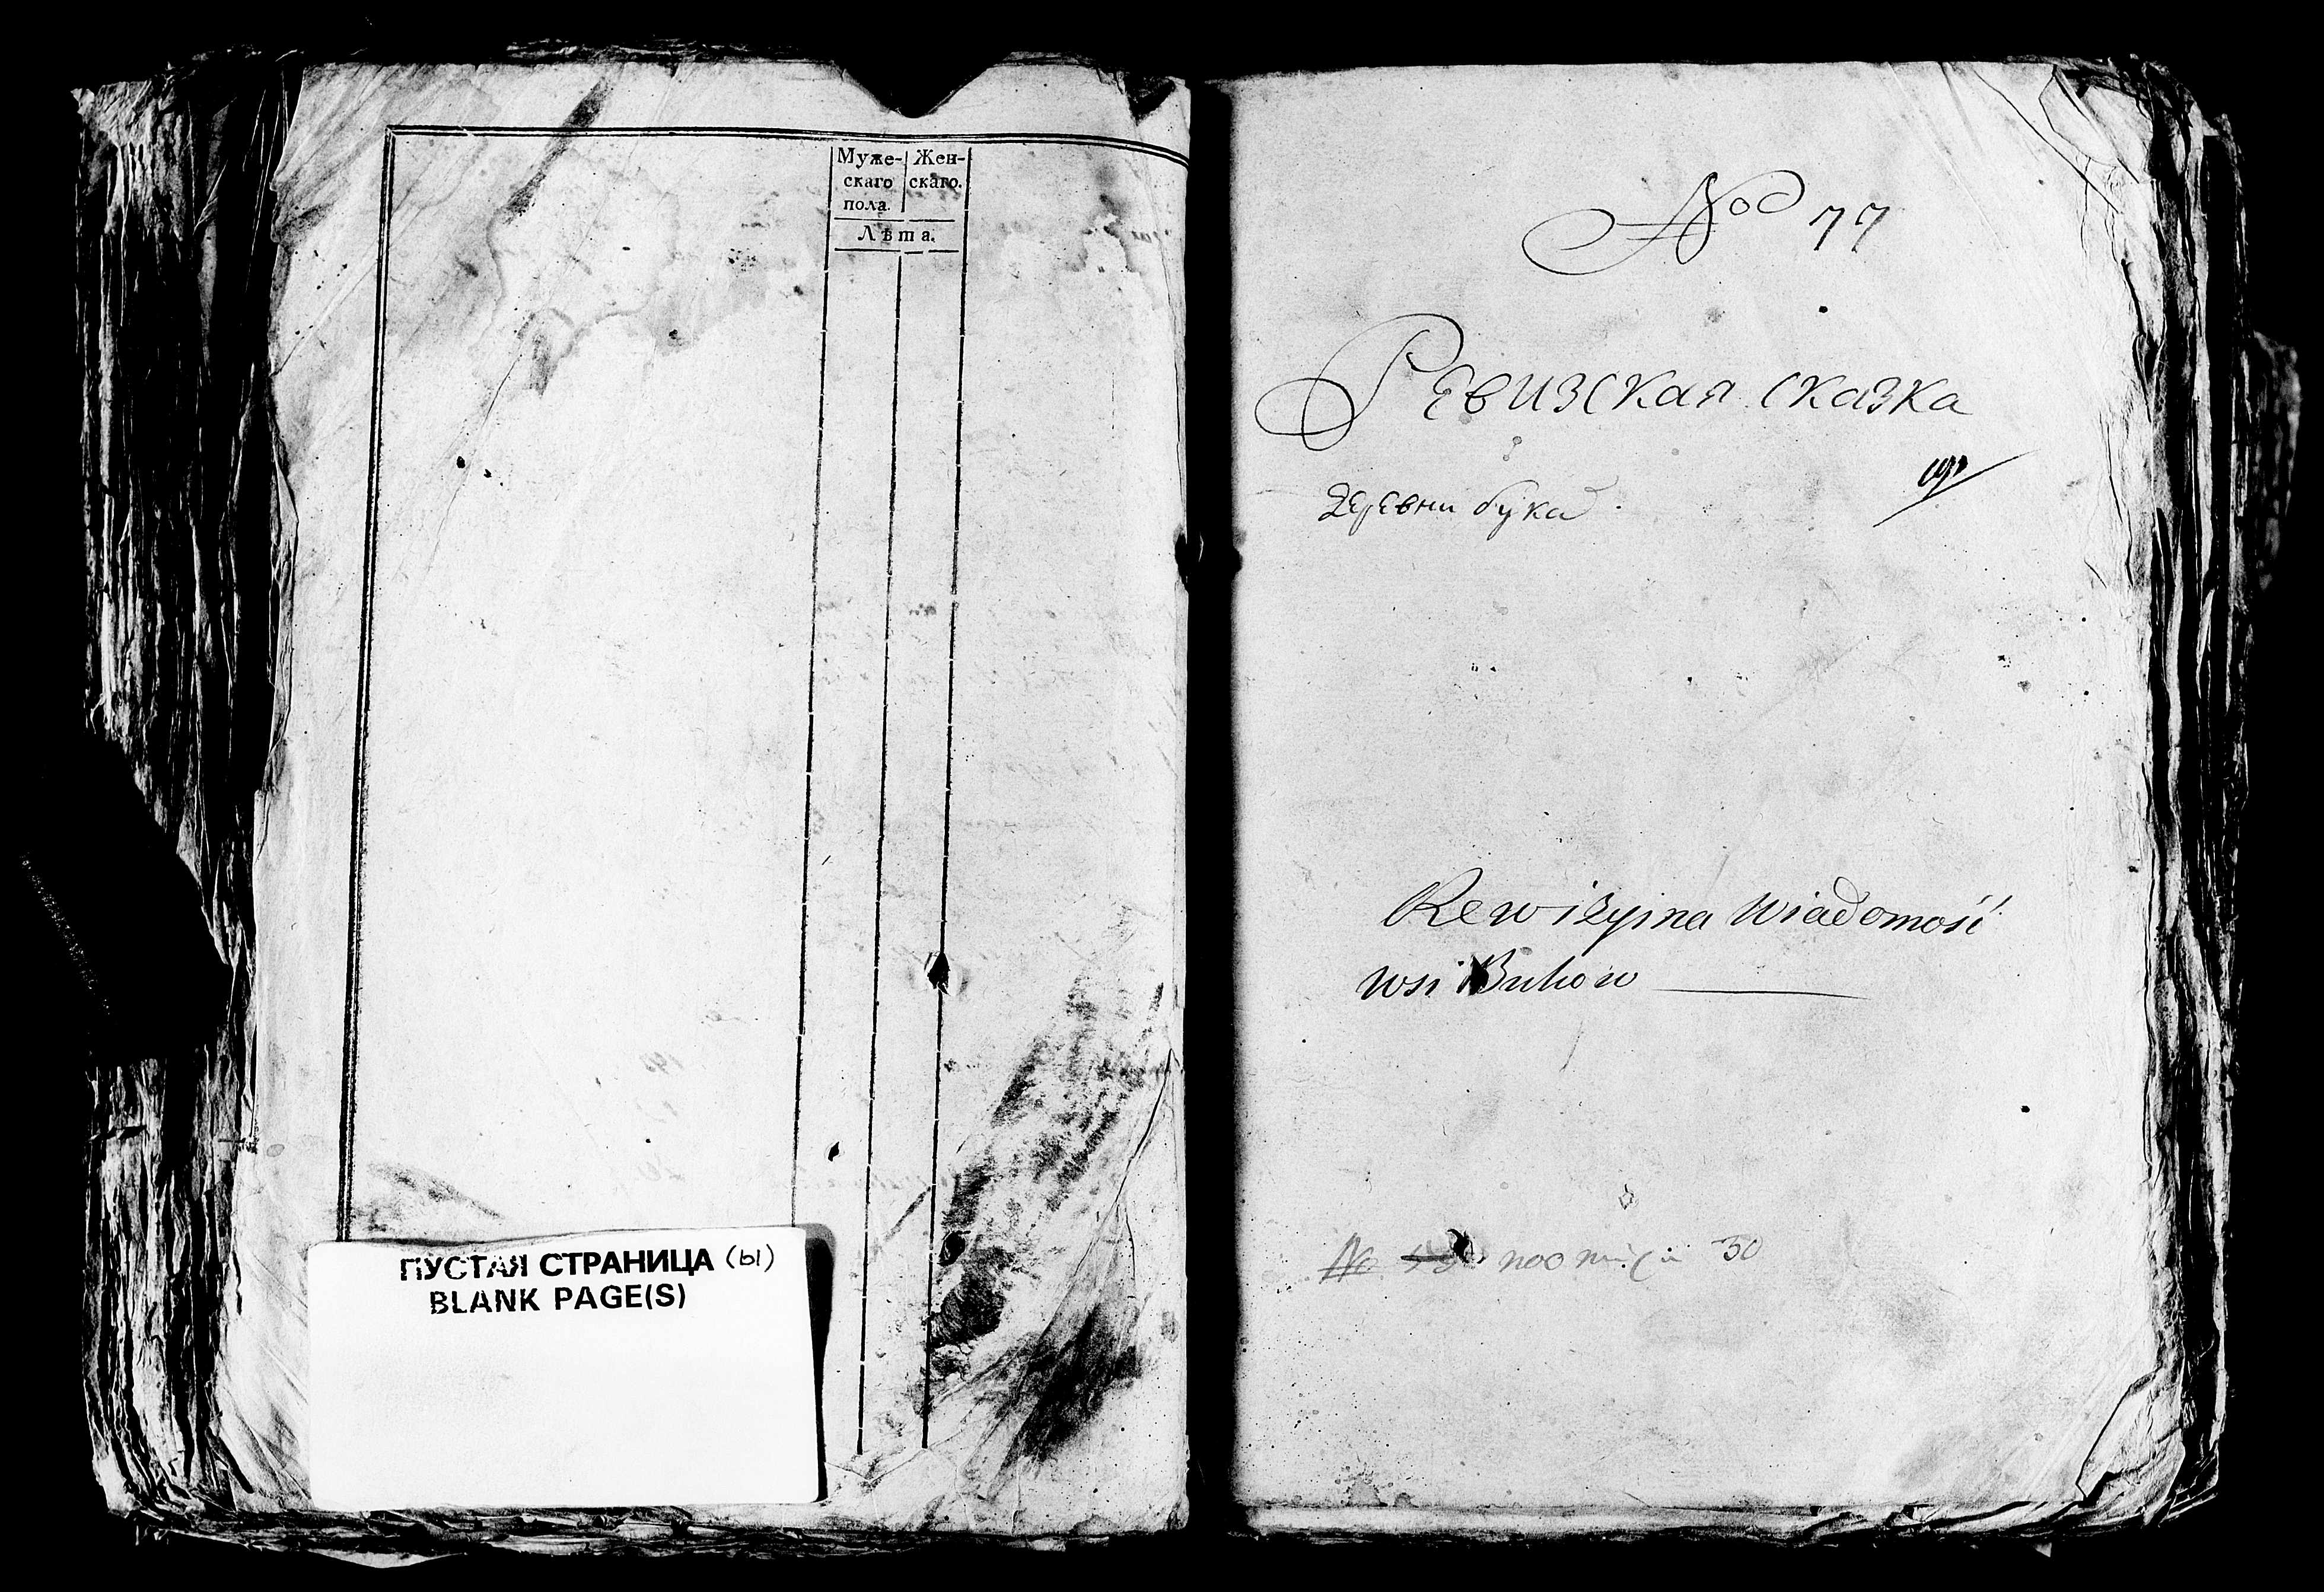 Муже- Жен-
скаго скаго.
пола.
Лѣта.
ПУСТАЯ СТРАНИЦА (Ы)
BLANK PAGE(S)
№ 77
Ревизская сказка
деревни бука
Rewizyina Wiadomość
wsi Bukow
№ 30